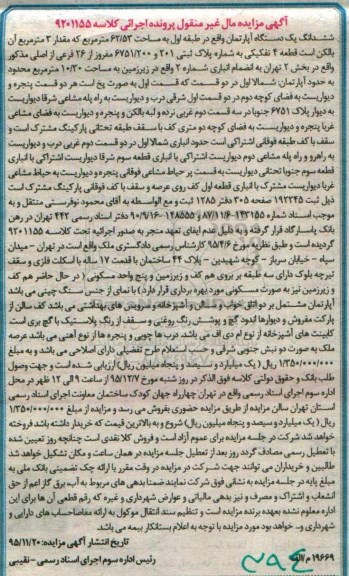 آگهی مزایده مال غیر منقول پرونده اجرائی کلاسه ۹۲۰۱۱۵۵
ششدانگ یک دستگاه آپارتمان واقع در طبقه اول به مساحت ۶۲/۵۳ مترمربع که مقدار ۳ مترمربع آن
بالکن است قطعه ۴ تفکیکی به شماره پلاک ثبتی ۲۰۱ و ۶۷۵۱/۲۰۰ مفروز از ۲۶ فرعی از اصلی مذکور
واقع در بخش ۲ تهران به انضمام انباری شماره ۲ واقع در زیرزمین به مساحت ۱۰/۲۰ مترمربع محدود
به حدود آپارتمان: شمالا اول در دو قسمت که قسمت اول به صورت پخ است هر دو قسمت پنجره و
دیواریست به فضای کوچه دوم در دو قسمت اول شرقی درب و دیواریست به راه پله مشاعی شرقا دیواریست
به دیوار پلاک ۶۷۵۱ جنوبا در سه قسمت دوم غربی نرده و لبه بالکن و پنجره و دیواریست به فضای مشاعی
غربا پنجره و دیواریست به فضای کوچه دو متری کف با سقف طبقه تحتانی پارکینگ مشترک است و
سقف با کف طبقه فوقانی اشتراکی است حدود انباری شمالا اول در دو قسمت دوم غربی درب و دیواریست
به راهرو و راه پله مشاعی دوم دیواریست اشتراکی با انباری قطعه سوم شرقا دیواریست اشتراکی با انباری
قطعه سوم جنوبا تحتانی دیواریست به قسمت پر حیاط مشاعی فوقانی پنجره و دیواریست به حیاط مشاعی
غربا دیواریست مشترک با انباری قطعه اول کف روی عرصه و سقف با کف فوقانی پارکینگ مشترک است
ذیل ثبت ۱۹۲۲۴۵ صفحه ۳۰۵ دفتر ۱۲۸۵ ثبت و مع الواسطه به آقای محمود نوفرستی منتقل و به
موجب اسناد شماره ۱۴۳۱۵۵-۸۷/۱۱/۶ و ۱۴۸۵۵۵-۹۰/۹/۱۶ دفتر اسناد رسمی ۴۴۲ تهران در رهن
بانک پاسارگاد قرار گرفته و به دلیل عدم ایفای تعهد منجر به صدور اجرائیه تحت کلاسه ۹۲۰۱۱۵۵
گردیده است و طبق نظریه مورخ ۹۵/۴/۶ کارشناس رسمی دادگستری ملک واقع است در تهران - میدان
سپاه - خیابان سرباز - کوچه شهیدین - پلاک ۴۴ ساختمان با قدمت ۱۷ ساله با اسکلت فلزی و سقف
تیرچه بلوک دارای سه طبقه بر روی هم کف و زیرزمین و پنج واحد مسکونی (در حال حاضر هم کف
و زیرزمین نیز به صورت مسکونی مورد بهره برداری قرار دارد) با نمای از جنس سنگ چینی می باشد
آپارتمان مشتمل بر دو اتاق خواب و سالن و آشپزخانه و سرویس های بهداشتی می باشد کف سالن از
پارکت مفروش و دیوارها اندود گچ و پوشش رنگ روغنی و سقف از رنگ پلاستیک با گچ بری است
کابینت های آشپزخانه از نوع ام دی اف می باشد درب ها چوبی و پنجره ها از نوع آهنی می باشد عرصه
ملک به صورت دو نبش جنوبی شرقی و حسب استعلام طرح تفضیلی دارای اصلاحی می باشد و به مبلغ
۱/۳۵۰/۰۰۰/۰۰۰ ریال (یک میلیارد و سیصد و پنجاه میلیون ریال) ارزیابی شده است و جهت وصول
طلب بانک و حقوق دولتی کلاسه فوق الذکر در روز شنبه مورخ ۹۵/۱۲/۷ از ساعت ۹ الی ۱۲ ظهر در محل
اداره سوم اجرای اسناد رسمی واقع در تهران چهارراه جهان کودک ساختمان معاونت اجرای اسناد رسمی
استان تهران سالن مزایده از طریق مزایده حضوری بفروش می رسد و مزایده از مبلغ ۱/۳۵۰/۰۰۰/۰۰۰
ریال (یک میلیارد و سیصد و پنجاه میلیون ریال) شروع و به بالاترین قیمت که خریدار داشته باشد فروخته
خواهد شد شرکت در جلسه مزایده برای عموم آزاد است و فروش کلا نقدی است چنانچه روز تعیین شده
با تعطیل رسمی مصادف گردد روز بعد از تعطیل جلسه مزایده در همان ساعت و مکان تشکیل خواهد شد
طالبین و خریداران می توانند جهت شرکت در مزایده در وقت مقرر با ارائه چک تضمینی بانک ملی به
مبلغ پایه در جلسه مزایده به نشانی فوق شرکت نمایند ضمنا بدهی های مربوط به آب برق گاز اعم از حق
انشعاب و اشتراک و مصرف و نیز بدهی مالیاتی و عوارض شهرداری و غیره که رقم قطعی آن ها برای این
اداره معلوم نشده بعهده برنده مزایده است و تنظیم سند انتقال موکول به ارائه مفاصاحساب های دارایی و
شهرداری و... خواهد بود مورد مزایده با توجه به اعلام بستانکار بیمه می باشد.
تاریخ انتشار آگهی مزایده: ۹۵/۱۱/۲۰
۱۹۶۶۹ م الف رئیس اداره سوم اجرای اسناد رسمی - نقیبی